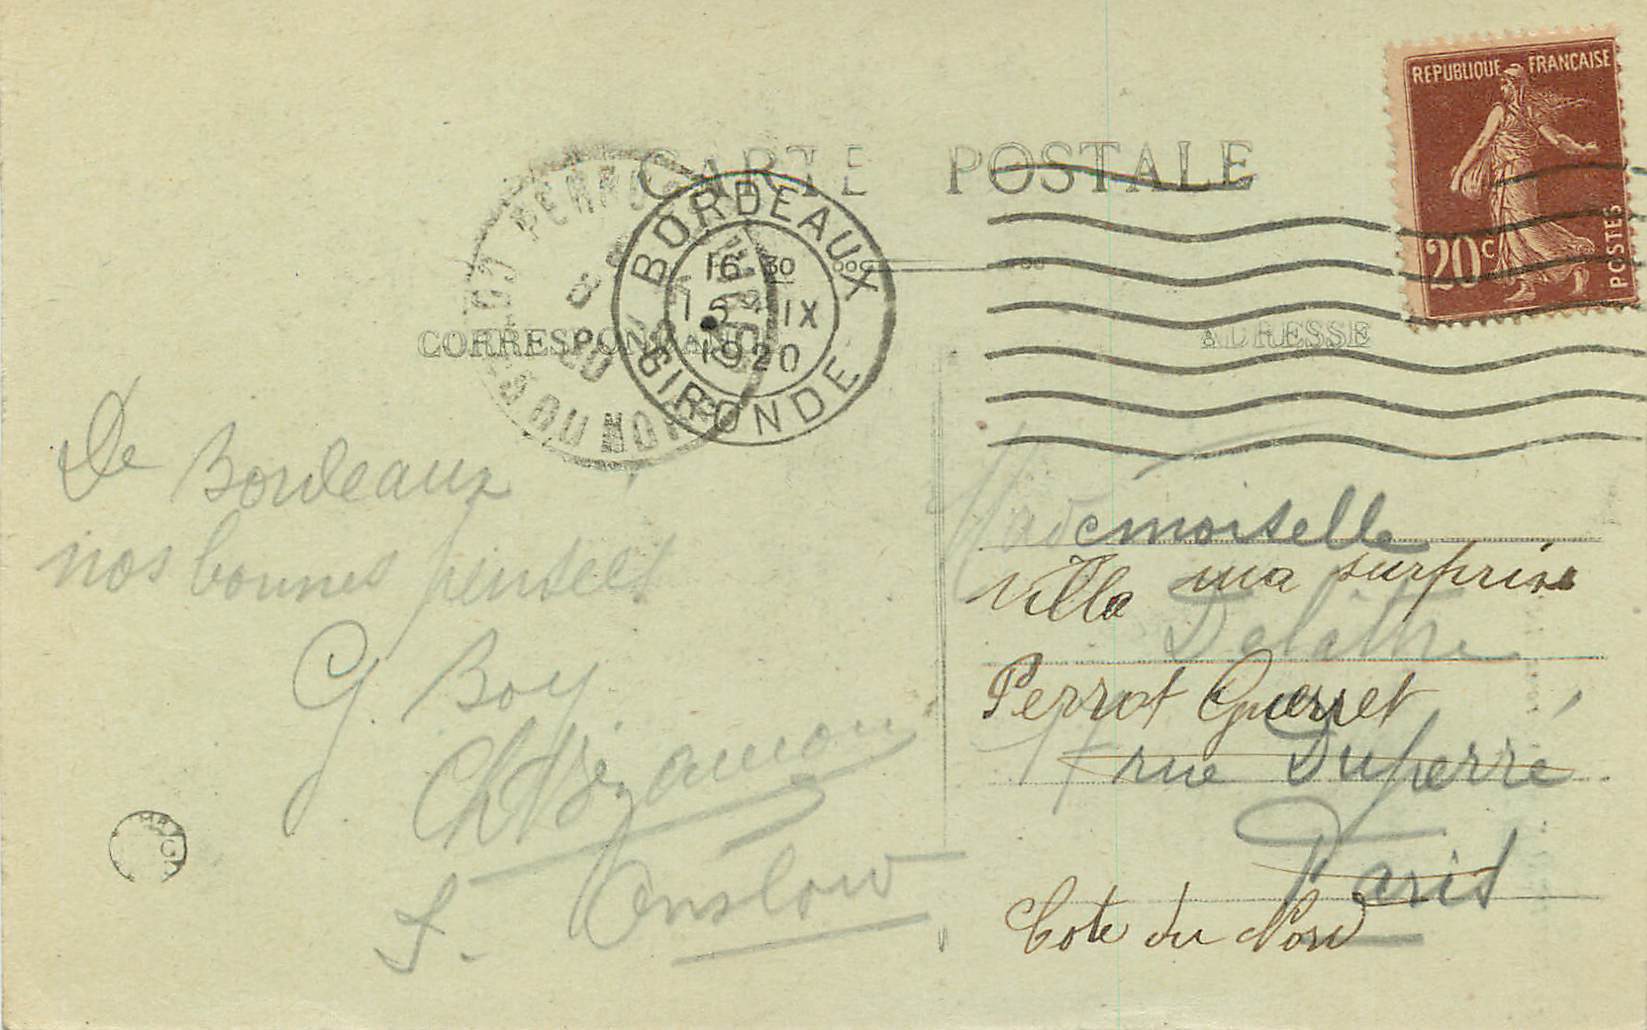 CARTE POSTALE
REPUBLIQUE FRANÇAISE
20c
POSTES
BORDEAUX
16 30
15 IX
1920
GIRONDE
PERRO
CO
S DU NORD
20
CORRESPONDANCE
ADRESSE
De Bordeaux
nos bonnes pensées
G. Boy
Onslow
Mademoiselle
Villa ma surprise
Delattre
Perrot Guerret
rue Duperré
Paris
Cote du Nord